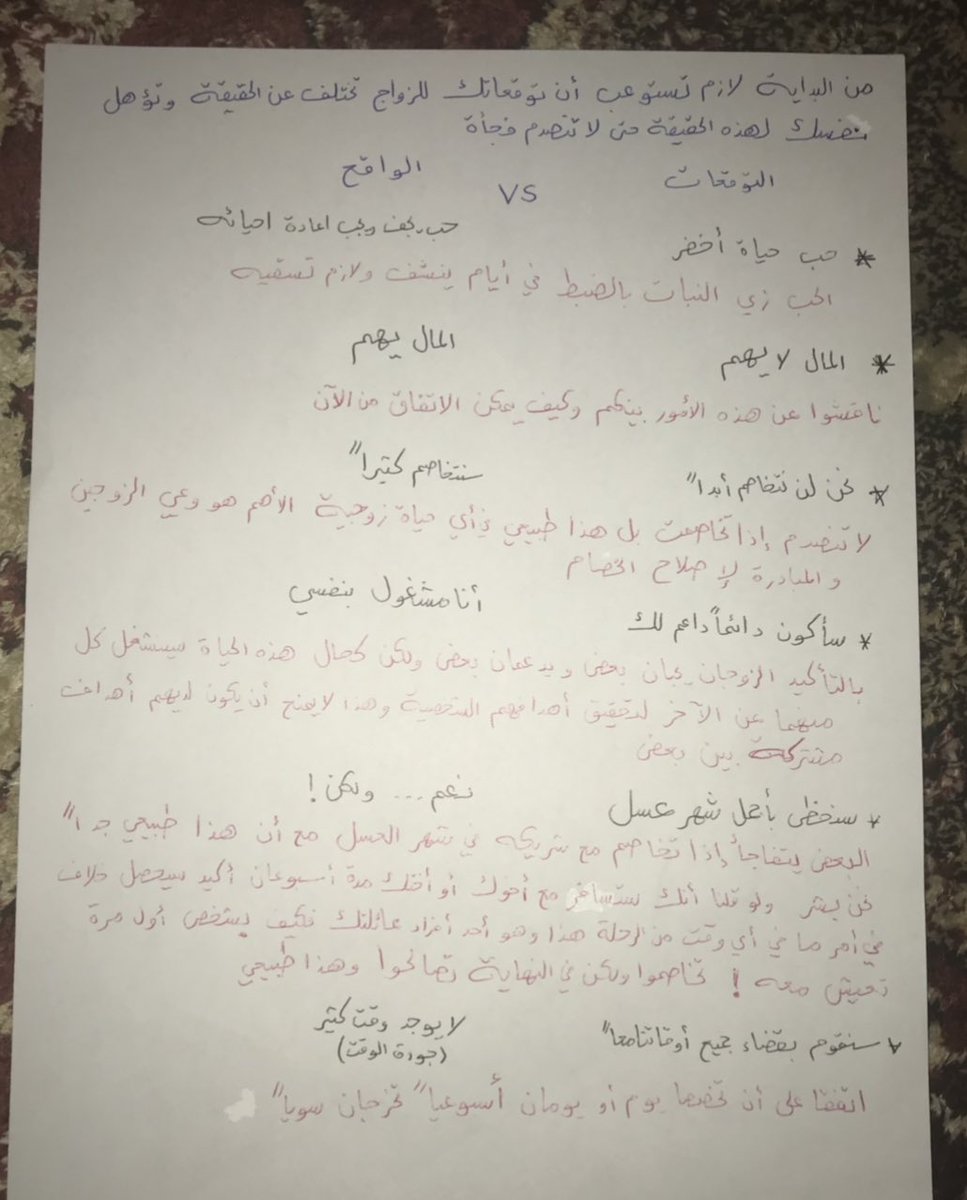 من البداية لازم تستوعب أن توقعاتك للزواج تختلف عن الحقيقة وتؤهل
نفسك لهذه الحقيقة حتى لا تنصدم فجأة
التوقعات VS الواقع
* حب حياة أخضر حب يجف ويجب اعادة احيائه
الحب زي النبات بالضبط في أيام ينشف ولازم تسقيه
* المال لا يهم المال يهم
ناقشوا عن هذه الأمور بينكم وكيف يمكن الاتفاق من الآن
* نحن لن نتخاصم أبدا" سنتخاصم كثيرا"
لا تنصدم إذا تخاصمت بل هذا طبيعي في أي حياة زوجية الأهم هو وعي الزوجين
والمبادرة لإصلاح الخصام
* سأكون دائماً داعم لك أنا مشغول بنفسي
بالتأكيد الزوجان يحبان بعض ويدعمان بعض ولكن كحال هذه الحياة سينشغل كل
منهما عن الآخر لتحقيق أهدافهم الشخصية وهذا لا يمنع أن يكون لديهم أهداف
مشتركة بين بعض
* سنحظى بأجمل شهر عسل نعم ... ولكن !
البعض يتفاجأ إذا تخاصم مع شريكه في شهر العسل مع أن هذا طبيعي جدا"
نحن بشر ولو قلنا أنك ستسافر مع أخوك أو أختك مدة أسبوعان أكيد سيحصل خلاف
في امر ما في أي وقت من الرحلة هذا وهو أحد أفراد عائلتك فكيف بشخص أول مرة
تعيش معه ! تخاصموا ولكن في النهاية تصالحوا وهذا طبيعي
* سنقوم بقضاء جميع أوقاتنا معا" لا يوجد وقت كثير
(جودة الوقت)
اتفقا على أن تخصصا يوم أو يومان أسبوعيا" تخرجان سويا"